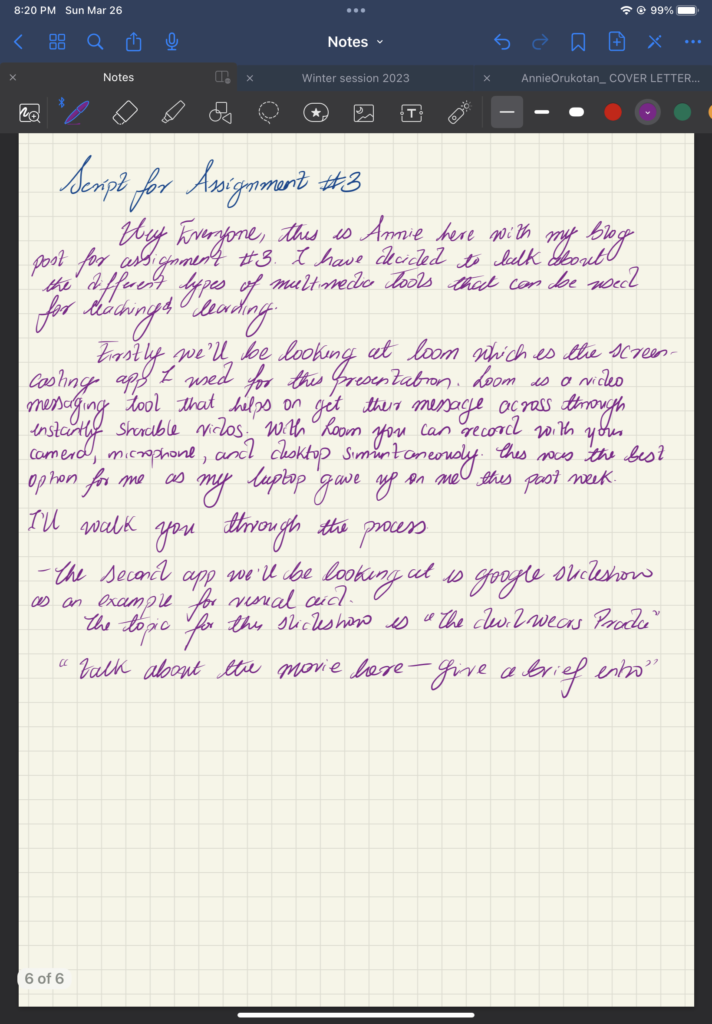 8:20 PM Sun Mar 26
99%
Notes
Notes
Winter session 2023
AnnieOrukotan_ COVER LETTER...
Script for Assignment #3
Hey Everyone, this is Annie here with my blog
post for assignment #3. I have decided to talk about
the different types of multimedia Tools that can be used
for teaching & learning.
Firstly we'll be looking at loom which is the screen-
casting app I used for this presentation. Loom is a video
messaging tool that helps on get their message across through
instantly sharable videos. With Loom you can record with your
camera, microphone, and desktop simultaneously. This was the best
option for me as my laptop gave up on me this past week.
I'll walk you through the process
- The second app we'll be looking at is google slideshow
as an example for visual aid.
The topic for this slideshow is "The devil wears Prada"
"talk about the movie here - give a brief intro"
6 of 6